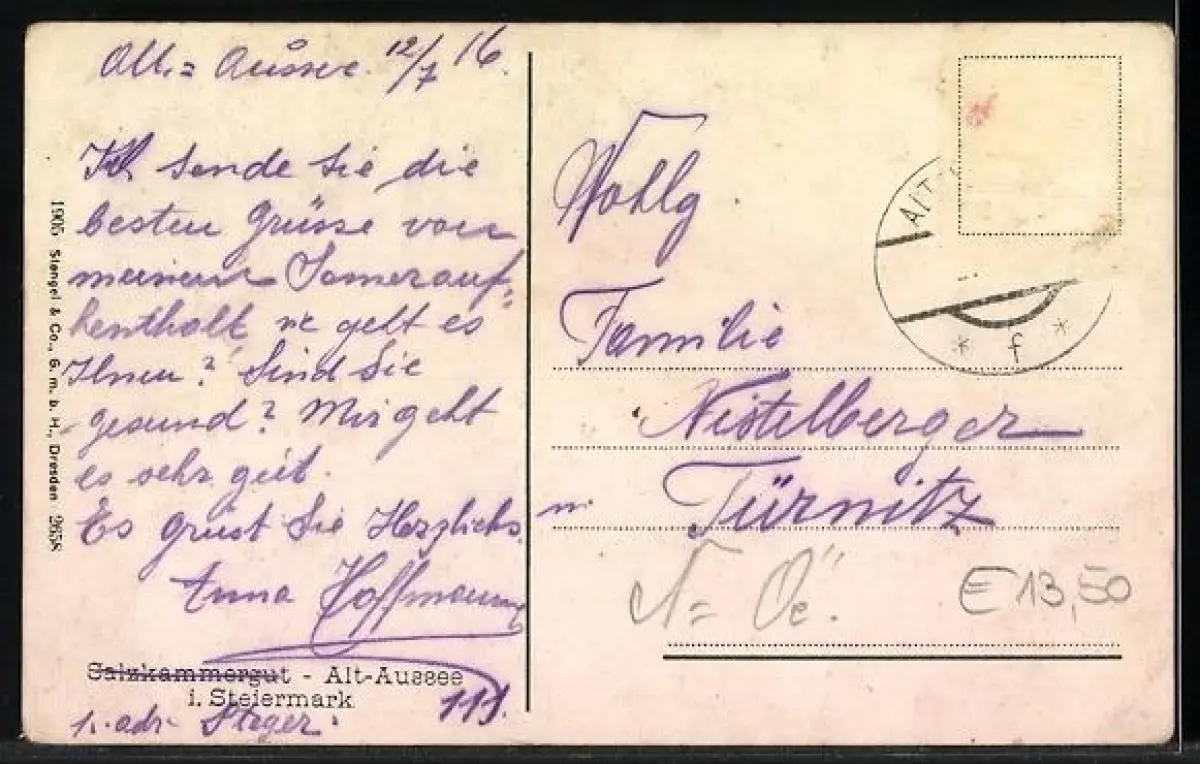 Alt = Aussee 12/7 16.
Ich sende Sie die
besten Grüsse von
meinem Somerauf=
henthalt we geht es
Ihnen? Sind Sie
gesund? Mir geht
es sehr gut.
Es grüst Sie Herzlichs
Anna Hoffmann
Salzkammergut - Alt-Aussee
i. Steiermark
adr Steger
1906 Stengel & Co., G. m. b. H., Dresden 26538
Wohlg.
Familie
Nistelberger
in Türnitz
N = Öe.
€ 13,50
ALT
* f *